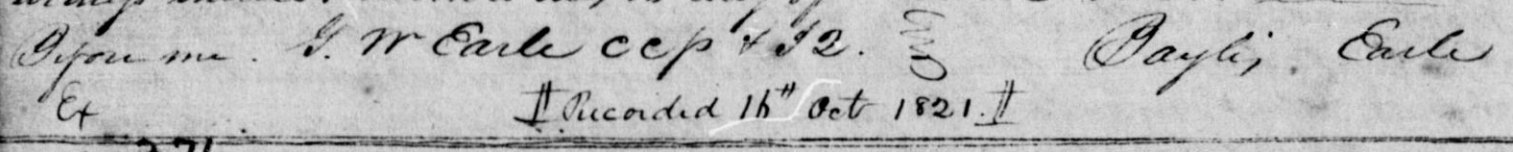 Before me. G. W Earle CCP & J2. Baylis Earle
Ex || Recorded 16" Oct 1821. ||